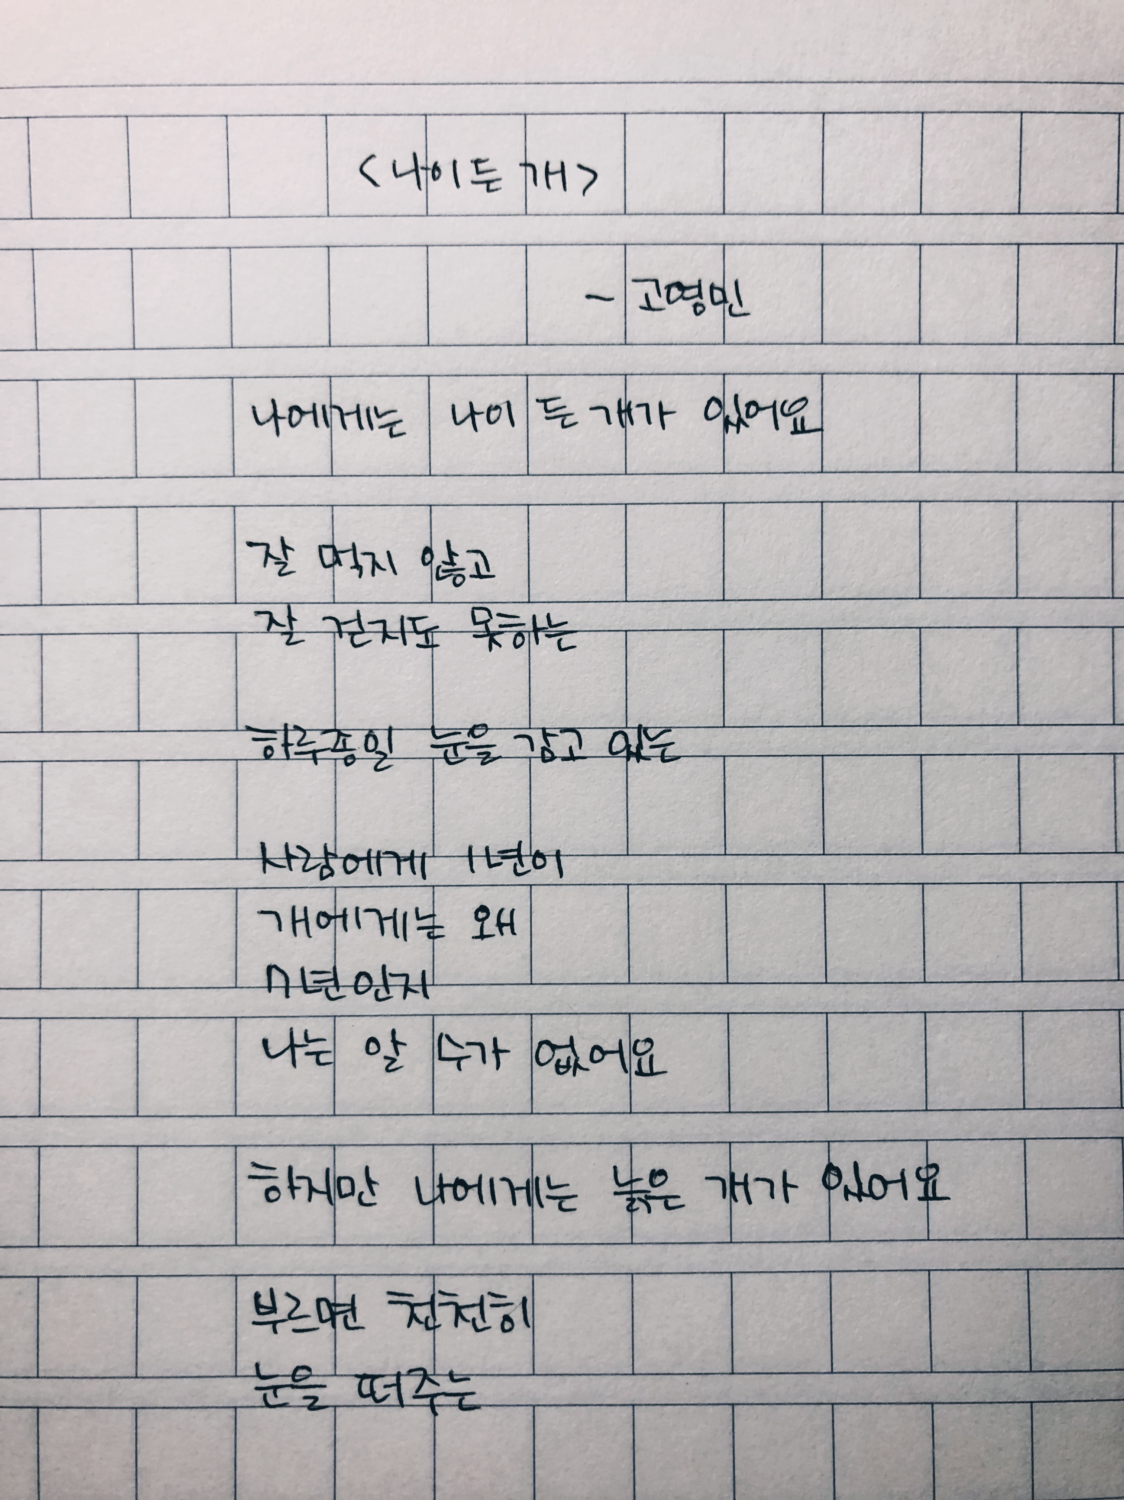 <나이든 개>
- 고영민
나에게는 나이 든 개가 있어요
잘 먹지 않고
잘 걷지도 못하는
하루종일 눈을 감고 있는
사람에게 1년이
개에게는 왜
7년인지
나는 알 수가 없어요
하지만 나에게는 늙은 개가 있어요
부르면 천천히
눈을 떠주는